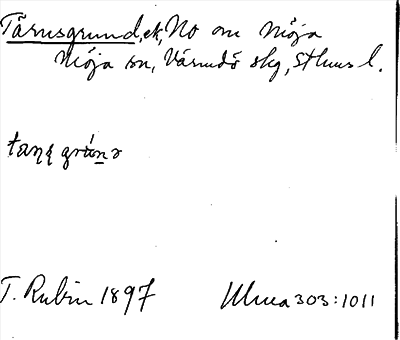 Tärnsgrund, sk, No om Möja
Möja sn, Värmdö skg, Sthms l.
T. Rubin 1897 Ulma 303:1011